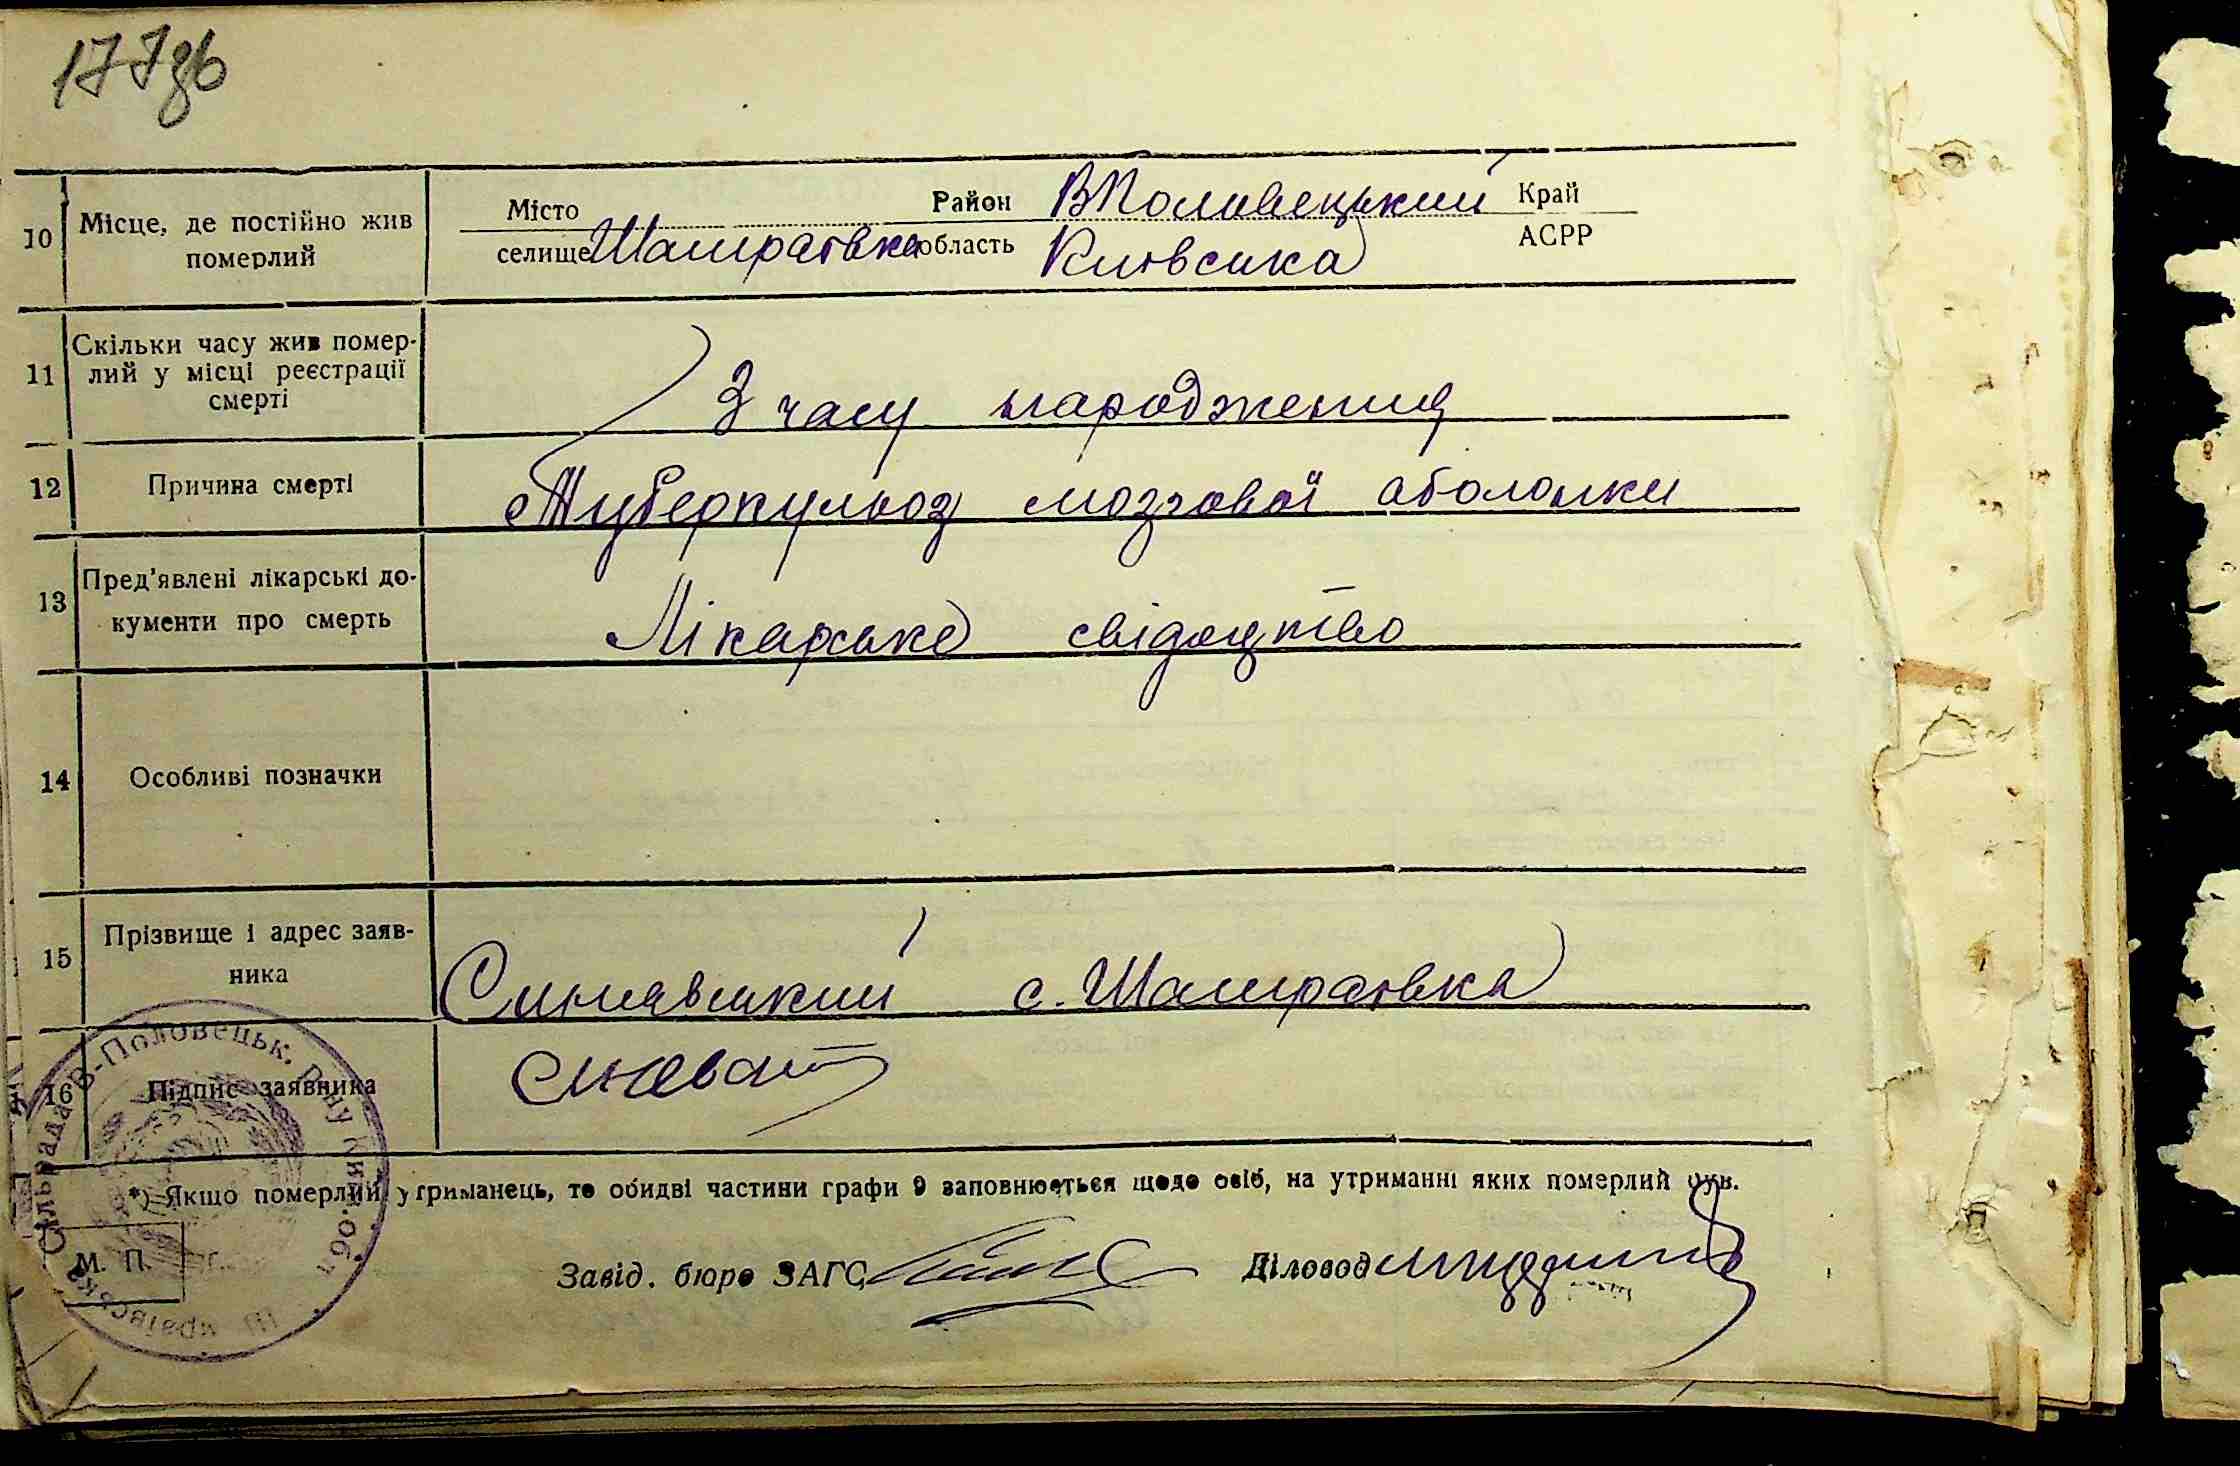 177зв
10 Місце, де постійно жив померлий
Місто Район ВПоловецький Край
селище Шамраївка область Київська АСРР
11 Скільки часу жив помер-
лий у місці реєстрації
смерті
З часу народження
12 Причина смерті Туберкульоз мозгової оболонки
13 Пред'явлені лікарські до-
кументи про смерть
Лікарське свідоцтво
14 Особливі позначки
15 Прізвище і адрес заяв-
ника
Синявський с. Шамраївка
16 Підпис заявника
*) Якщо померлий утриманець, то обидві частини графи 9 заповнюється щодо осіб, на утриманні яких померлий був.
М. П.
Завід. бюро ЗАГС Діловод
Сільрада В-Половецьк. Р-ну Київ. Обл